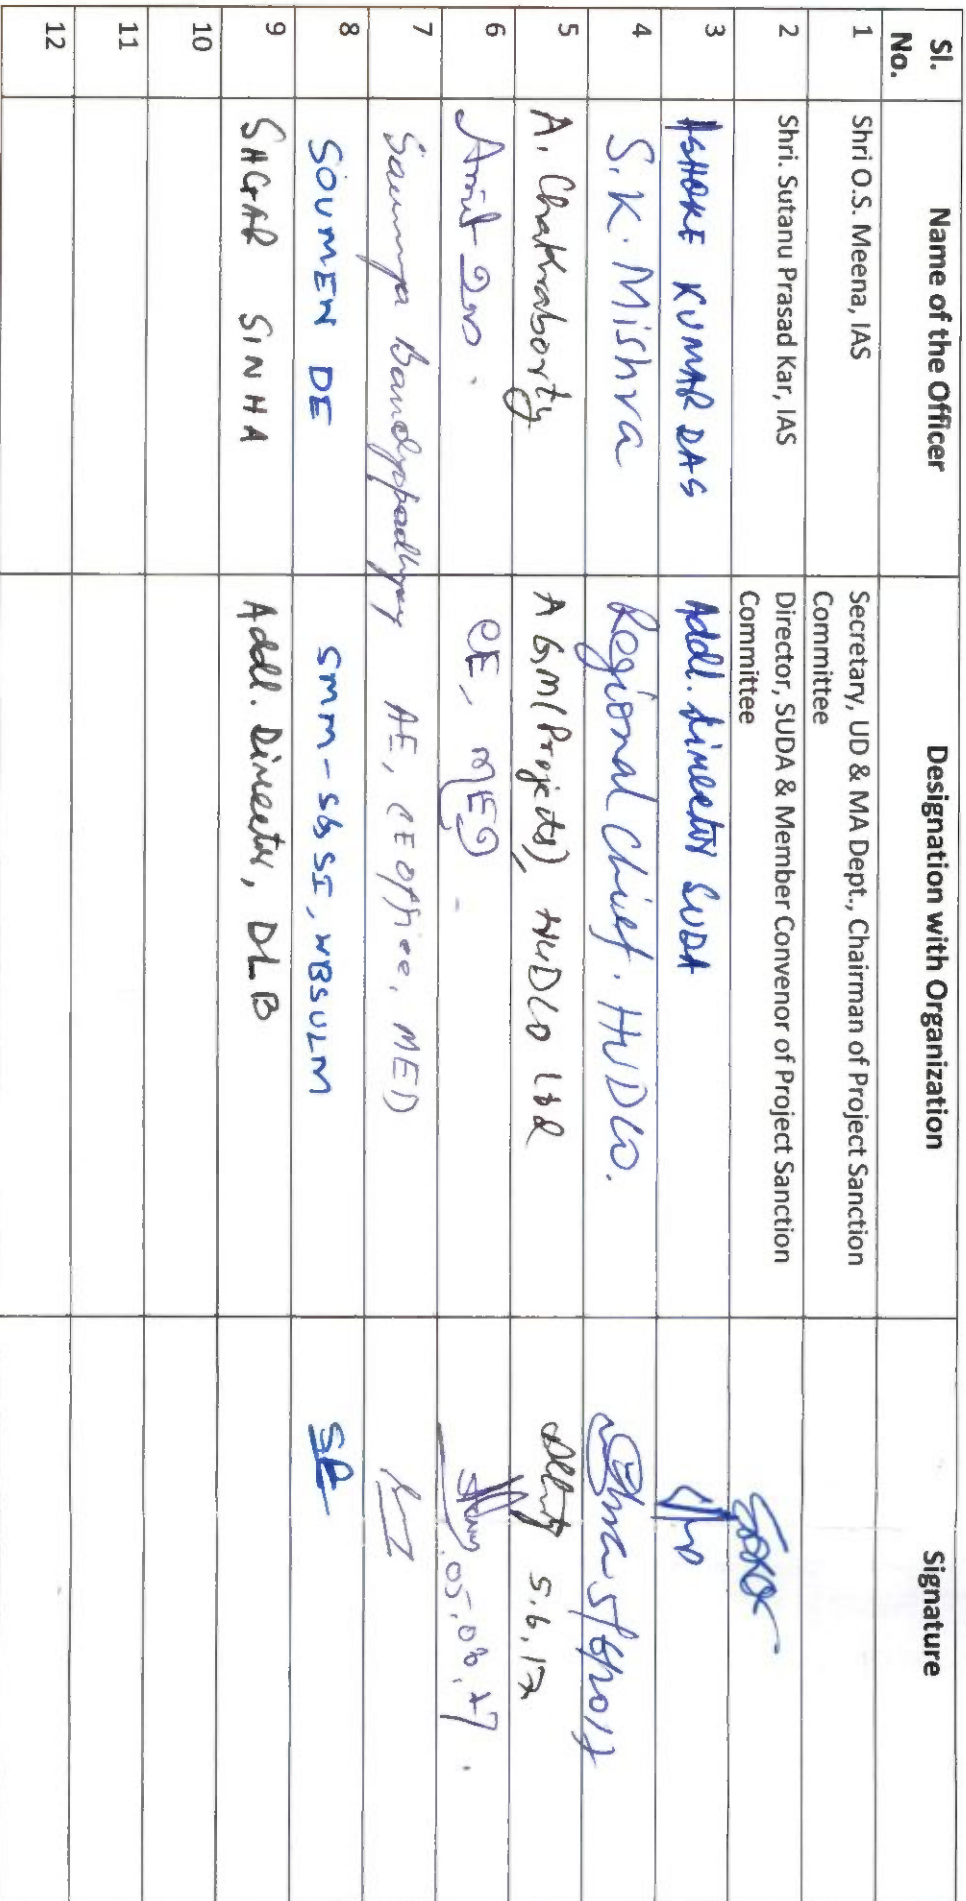 Sl. No. Name of the Officer Designation with Organization Signature
1 Shri O.S. Meena, IAS Secretary, UD & MA Dept., Chairman of Project Sanction
Committee
2 Shri. Sutanu Prasad Kar, IAS Director, SUDA & Member Convenor of Project Sanction
Committee
3 ASHOKE KUMAR DAS Addl. Director SUDA
4 S.K. Mishra Regional Chief, HUDCO.
5 A. Chakraborty AGM(Projects), HUDCO Ltd 5.6.17
6 CE, MED
7 Saumya Bandyopadhyay AE, CE office, MED
8 SOUMEN DE SMM-S&SI, WBSULM
9 SAGAR SINHA Addl. Director, DLB
10
11
12